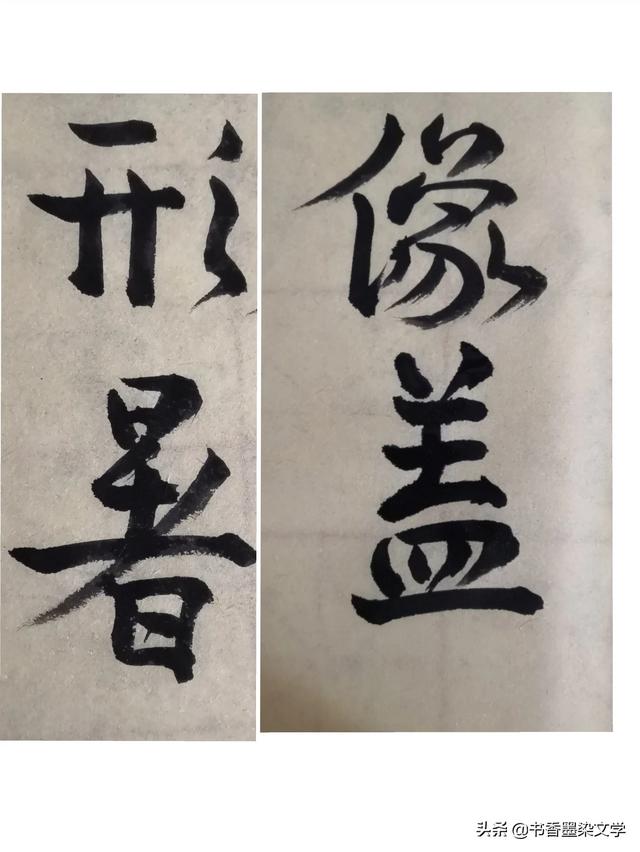 像盖
形暑
头条 @书香墨染文学